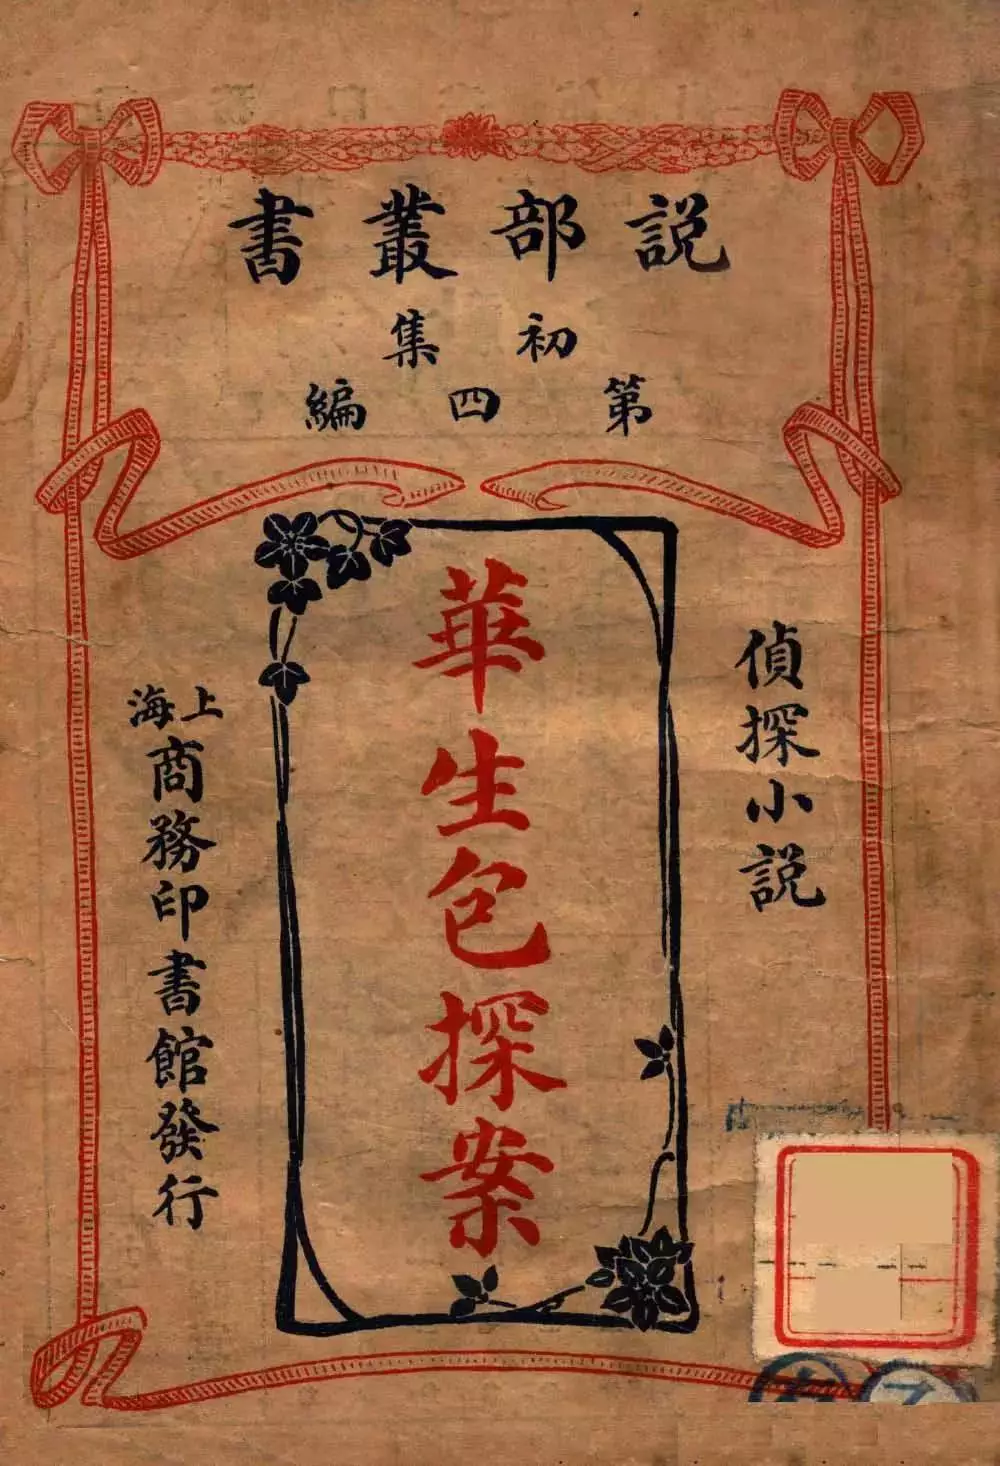 説部叢書
初集
第四編
偵探小説
華生包探案
上海商務印書館發行